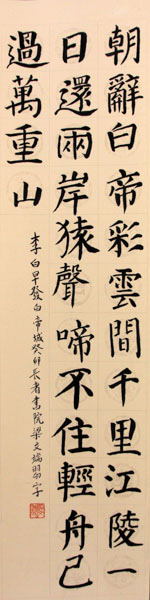 朝辭白帝彩雲間千里江陵一
日還兩岸猿聲啼不住輕舟已
過萬重山
李白早發白帝城癸卯長青書院梁文端習字